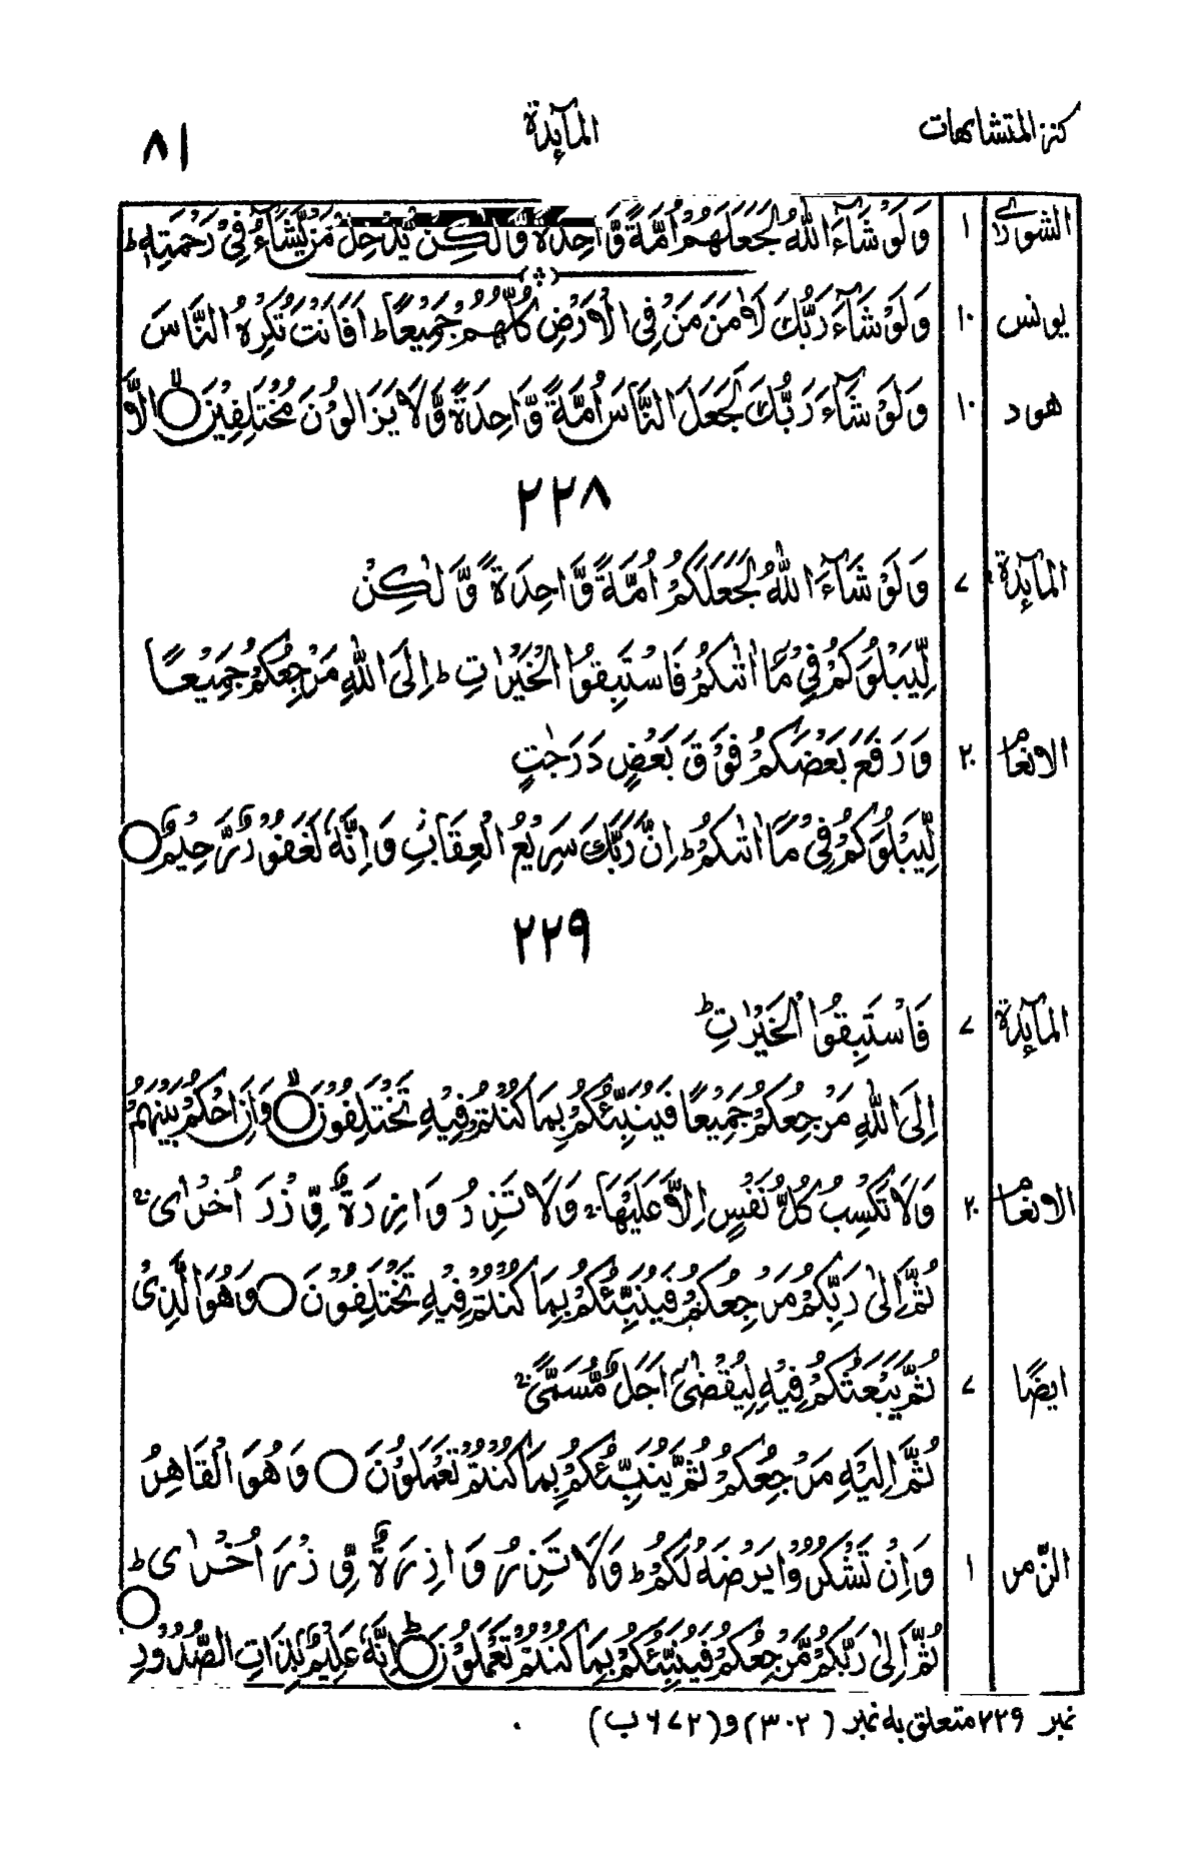 كنز المتشابهات المآئدة ٨١
الشورٰى ١ وَلَوْ شَآءَ اللّٰهُ لَجَعَلَهُمْ اُمَّةً وَّاحِدَةً وَّلٰكِنْ يُّدْخِلُ مَنْ يَّشَآءُ فِيْ رَحْمَتِهٖ ؕ
يونس ١٠ وَلَوْ شَآءَ رَبُّكَ لَاٰمَنَ مَنْ فِي الْاَرْضِ كُلُّهُمْ جَمِيْعًا ؕ اَفَاَنْتَ تُكْرِهُ النَّاسَ
هود ١٠ وَلَوْ شَآءَ رَبُّكَ لَجَعَلَ النَّاسَ اُمَّةً وَّاحِدَةً وَّلَا يَزَالُوْنَ مُخْتَلِفِيْنَ ۙ○ اِلَّا
٢٢٨
المآئدة ٧ وَلَوْ شَآءَ اللّٰهُ لَجَعَلَكُمْ اُمَّةً وَّاحِدَةً وَّلٰكِنْ
لِّيَبْلُوَكُمْ فِيْ مَآ اٰتٰىكُمْ فَاسْتَبِقُوا الْخَيْرٰتِ ؕ اِلَى اللّٰهِ مَرْجِعُكُمْ جَمِيْعًا
الانعام ٢٠ وَرَفَعَ بَعْضَكُمْ فَوْقَ بَعْضٍ دَرَجٰتٍ
لِّيَبْلُوَكُمْ فِيْ مَآ اٰتٰىكُمْ ؕ اِنَّ رَبَّكَ سَرِيْعُ الْعِقَابِ ۖ وَاِنَّهٗ لَغَفُوْرٌ رَّحِيْمٌ ○
٢٢٩
المآئدة ٧ فَاسْتَبِقُوا الْخَيْرٰتِ ؕ
اِلَى اللّٰهِ مَرْجِعُكُمْ جَمِيْعًا فَيُنَبِّئُكُمْ بِمَا كُنْتُمْ فِيْهِ تَخْتَلِفُوْنَ ۙ○ وَاَنِ احْكُمْ بَيْنَهُمْ
الانعام ٢٠ وَلَا تَكْسِبُ كُلُّ نَفْسٍ اِلَّا عَلَيْهَا ۚ وَلَا تَزِرُ وَازِرَةٌ وِّزْرَ اُخْرٰى ۚ
ثُمَّ اِلٰى رَبِّكُمْ مَرْجِعُكُمْ فَيُنَبِّئُكُمْ بِمَا كُنْتُمْ فِيْهِ تَخْتَلِفُوْنَ ○ وَهُوَ الَّذِيْ
ايضًا ٧ ثُمَّ يَبْعَثُكُمْ فِيْهِ لِيُقْضٰۤى اَجَلٌ مُّسَمًّى ۚ
ثُمَّ اِلَيْهِ مَرْجِعُكُمْ ثُمَّ يُنَبِّئُكُمْ بِمَا كُنْتُمْ تَعْمَلُوْنَ ○ وَهُوَ الْقَاهِرُ
الزّمر ١ وَاِنْ تَشْكُرُوْا يَرْضَهُ لَكُمْ ؕ وَلَا تَزِرُ وَازِرَةٌ وِّزْرَ اُخْرٰى ؕ
ثُمَّ اِلٰى رَبِّكُمْ مَّرْجِعُكُمْ فَيُنَبِّئُكُمْ بِمَا كُنْتُمْ تَعْمَلُوْنَ ؕ○ اِنَّهٗ عَلِيْمٌۢ بِذَاتِ الصُّدُوْرِ ○
نمبر ٢٢٩ متعلق به نمبر (٣٠٢) و(٦٧٢ ب)